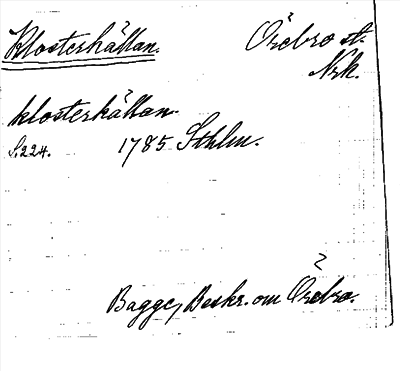 Klosterkällan.
Örebro st.
Nrk.
klosterkällan.
S. 224. 1785 Sthlm.
Bagge, Beskr. om Örebro.